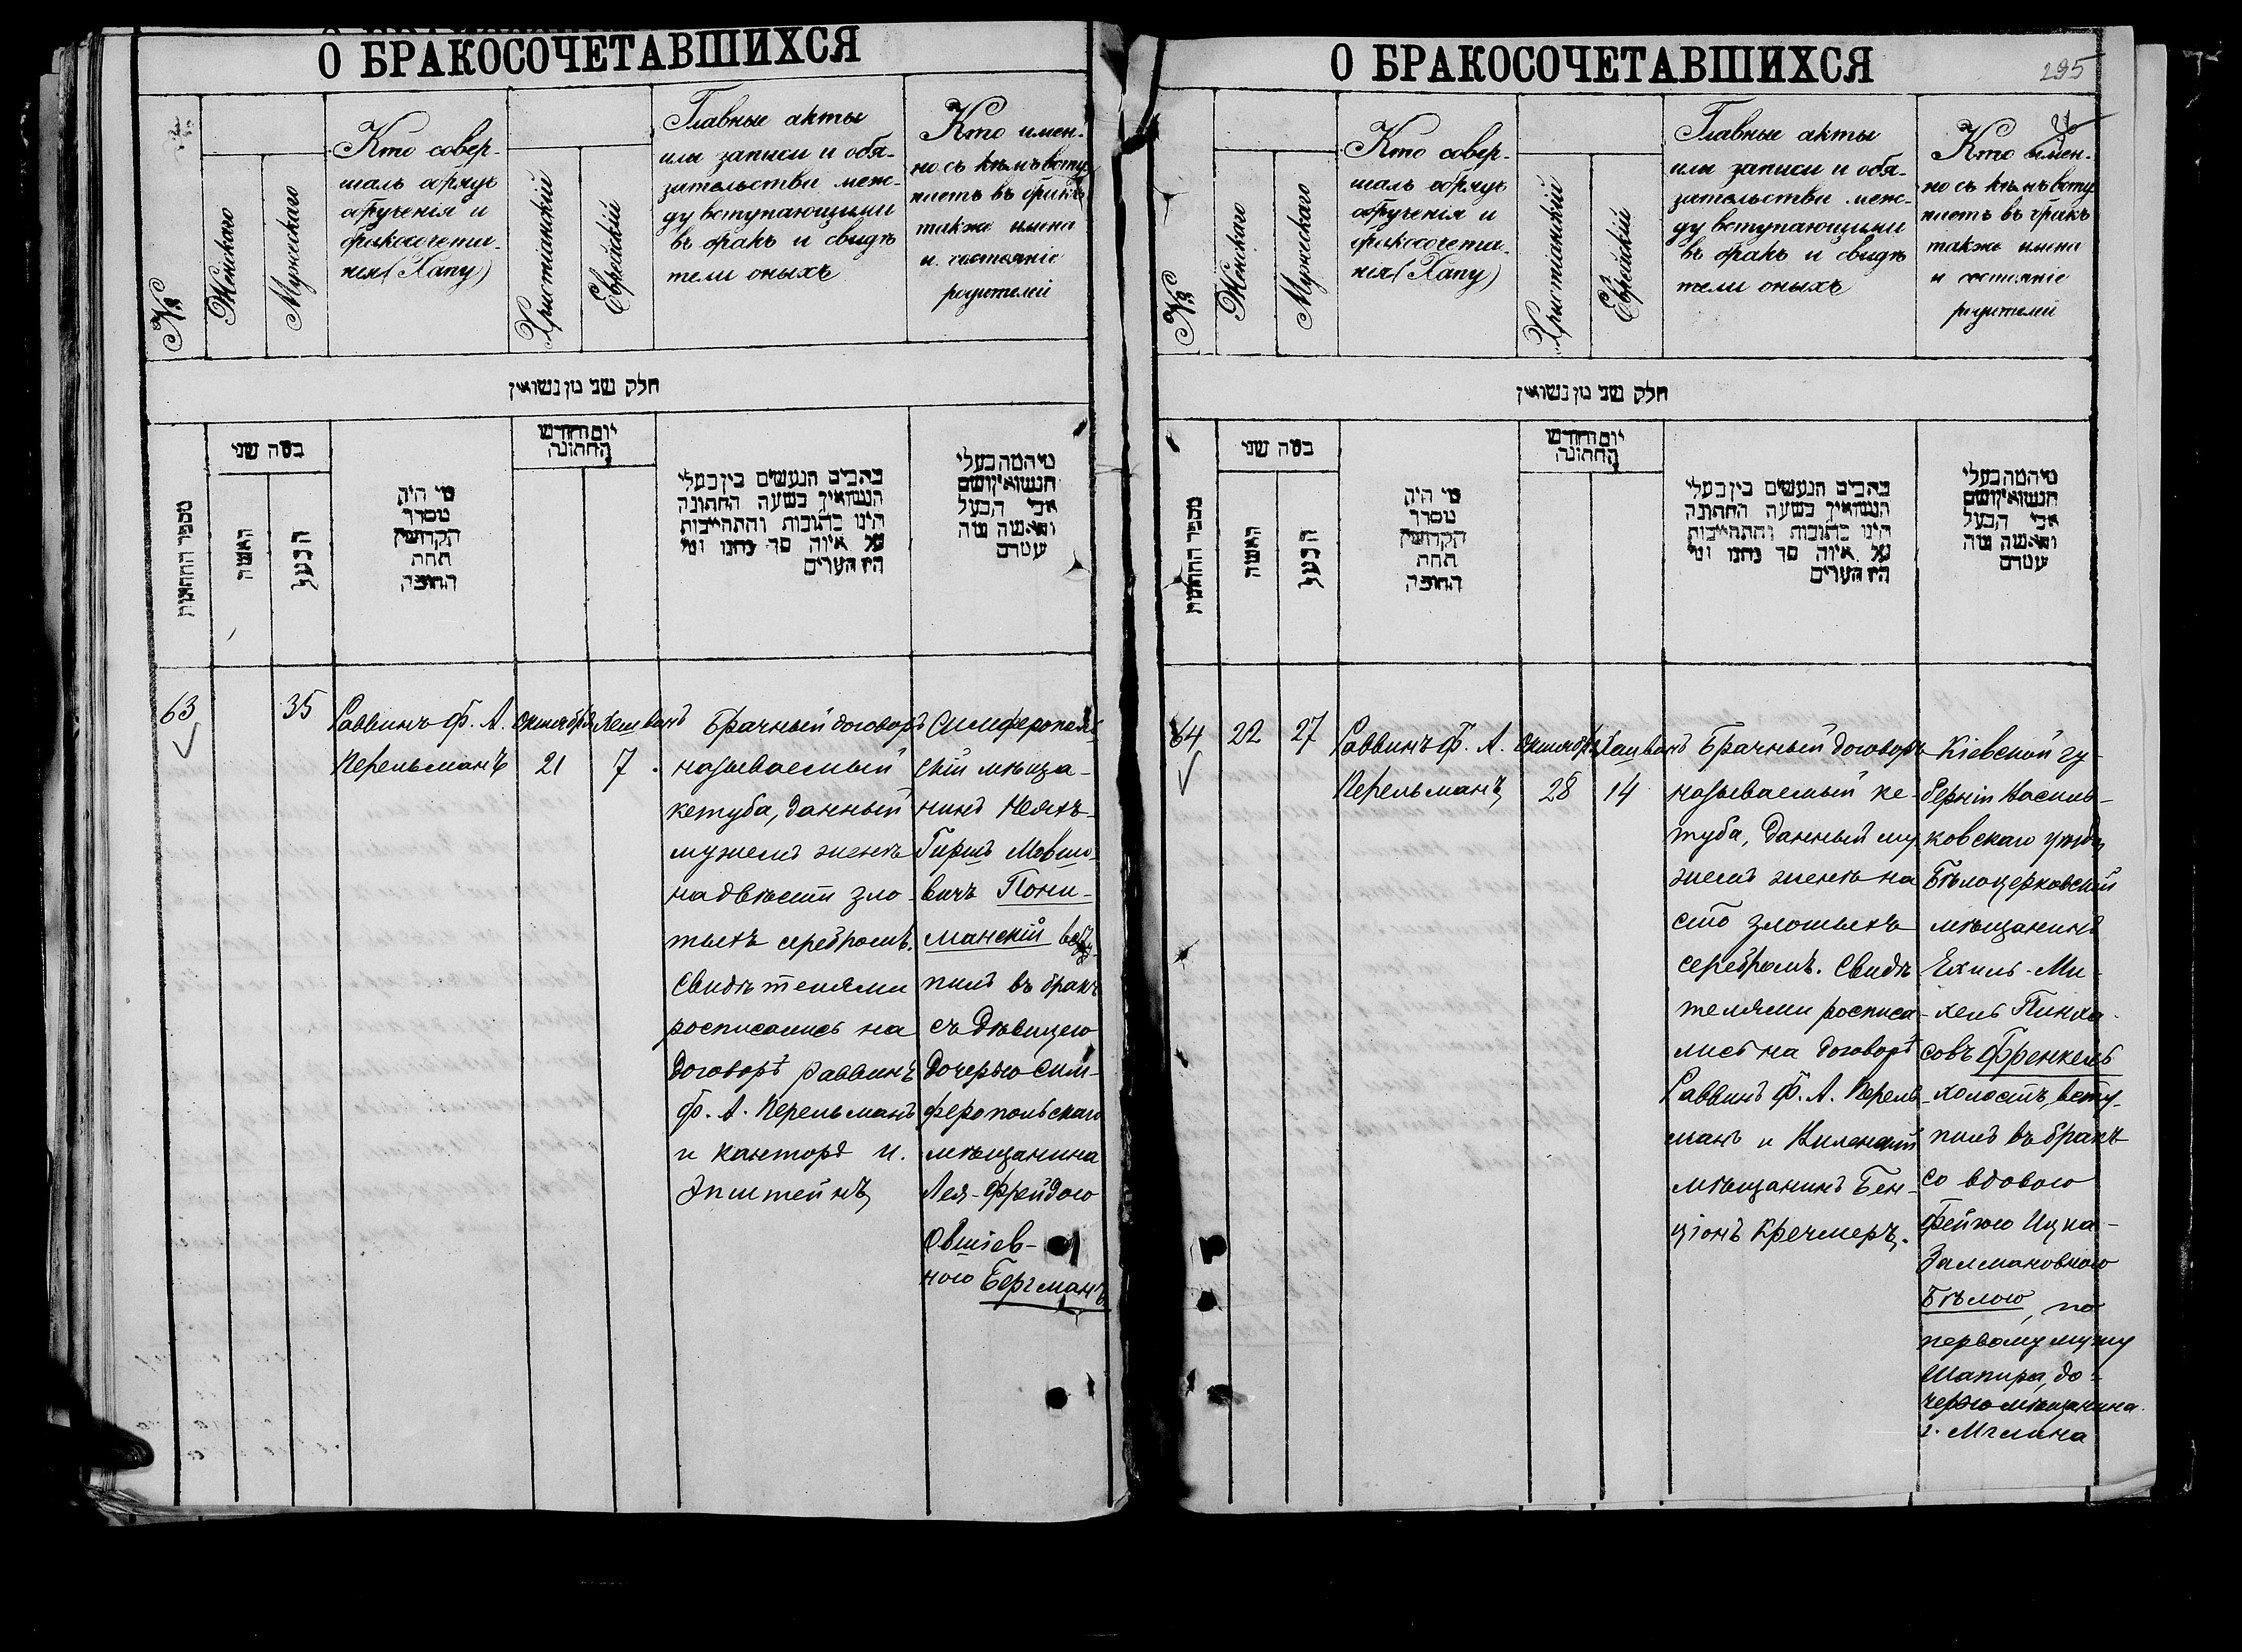 О БРАКОСОЧЕТАВШИХСЯ
№
Женскаго
Мужскаго
Кто совер-
шалъ обрядъ
обрученія и
бракосочета-
нія (Хапу)
Христіанскій
Еврейскій
Главные акты
или записи и обя-
зательства меж-
ду вступающими
въ бракъ и свидѣ
тели оныхъ
Кто имен-
но съ кѣмъ всту
паетъ въ бракъ
также имена
и состояніе
родителей
חלק שני מן נשואין
מספר החתונות
במה שני
האשה
הבעל
מי היה
מסדר
הקדושין
תחת
החופה
יום וחודש
החתונה
כתבים הנעשים בין בעלי
הנשואין בשעה החתונה
היגו כתובות והתחייבות
על איזה סך נתנו ומי
היו הערים
מי המה בעלי
הנשואין ושם
אבי הבעל
והאשה מה
עטרם
63
35
Раввинъ Ф. А.
Перельманъ
Октября
21
Хешванъ
7
Брачный договоръ
называемый
кетуба, данный
мужемъ женѣ
на двѣсти зло-
тыхъ серебромъ.
Свидѣтелями
росписались на
договорѣ раввинъ
Ф. А. Перельманъ
и канторъ И.
Эпштейнъ
Симферополь-
скій мѣща-
нинъ
Гиршъ Мовшо-
вичъ Пони-
манскій всту-
пилъ въ бракъ
съ дѣвицею
дочерью Сим-
феропольскаго
мѣщанина
Лея-Фрейдою
Овшіев-
ною Бергманъ
О БРАКОСОЧЕТАВШИХСЯ
295
№
Женскаго
Мужскаго
Кто совер-
шалъ обрядъ
обрученія и
бракосочета-
нія (Хапу)
Христіанскій
Еврейскій
Главные акты
или записи и обя-
зательства меж-
ду вступающими
въ бракъ и свидѣ
тели оныхъ
Кто имен-
но съ кѣмъ всту
паетъ въ бракъ
также имена
и состояніе
родителей
חלק שני מן נשואין
מספר החתונות
במה שני
האשה
הבעל
מי היה
מסדר
הקדושין
תחת
החופה
יום וחודש
החתונה
כתבים הנעשים בין בעלי
הנשואין בשעה החתונה
היגו כתובות והתחייבות
על איזה סך נתנו ומי
היו הערים
מי המה בעלי
הנשואין ושם
אבי הבעל
והאשה מה
עטרם
64
22
27
Раввинъ Ф. А.
Перельманъ
Октября
28
Хешванъ
14
Брачный договоръ
называемый ке-
туба, данный му
жемъ женѣ на
сто злотыхъ
серебромъ. Свидѣ
телями росписа-
лись на договорѣ
Раввинъ Ф. А. Перель-
манъ и Виленскій
мѣщанинъ Бен-
ціонъ Кречмеръ.
Кіевской гу-
берніи Василь-
ковскаго уѣзда
Бѣлоцерковскій
мѣщанинъ
Ехиль-Ми-
хель Пинха-
совъ Френкель
холостъ, всту-
пилъ въ бракъ
со вдовою
Фейгою Ицка-
Залмановною
Бѣлою, по
первому мужу
Шапира, до-
черью мѣщанина
г. Мглина